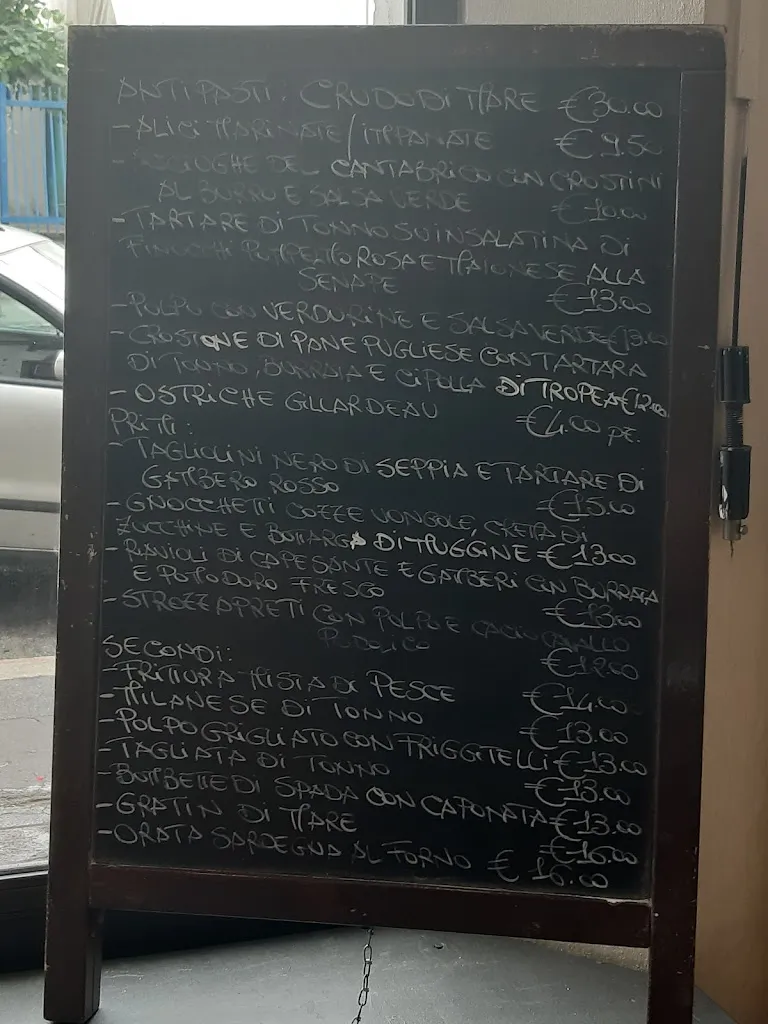 ANTIPASTI: CRUDO DI MARE €30.00
- ALICI MARINATE/IMPANATE €9.50
- ACCIUGHE DEL CANTABRICO CON CROSTINI
AL BURRO E SALSA VERDE €10.00
- TARTARE DI TONNO SU INSALATINA DI
FINOCCHI POMPELMO ROSA E MAIONESE ALLA
SENAPE €13.00
- POLPO CON VERDURINE E SALSA VERDE €13.00
- CROSTONE DI PANE PUGLIESE CON TARTARA
DI TONNO, BURRATA E CIPOLLA DI TROPEA €12.00
- OSTRICHE GILLARDEAU €4.00 pz.
PRIMI:
- TAGLIOLINI NERO DI SEPPIA E TARTARE DI
GAMBERO ROSSO €15.00
- GNOCCHETTI COZZE VONGOLE, CREMA DI
ZUCCHINE E BOTTARGA DI MUGGINE €13.00
- RAVIOLI DI CAPESANTE E GAMBERI CON BURRATA
E POMODORO FRESCO €13.00
- STROZZAPRETI CON POLPO E CACIOCAVALLO
PODOLICO €12.00
SECONDI:
- FRITTURA MISTA DI PESCE €14.00
- MILANESE DI TONNO €13.00
- POLPO GRIGLIATO CON FRIGGITELLI €13.00
- TAGLIATA DI TONNO €13.00
- BOMBETTE DI SPADA CON CAPONATA €13.00
- GRATIN DI MARE €16.00
- ORATA SARDEGNA AL FORNO €16.00